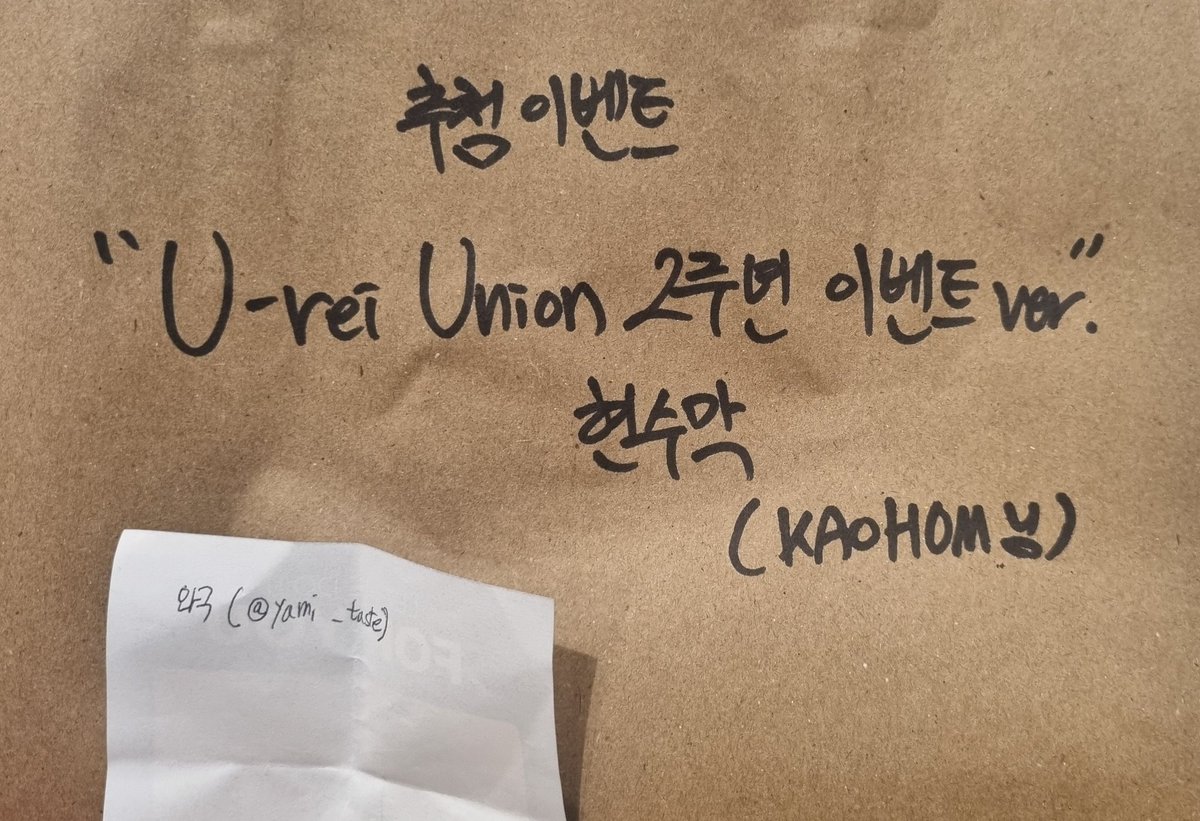 추첨 이벤트
"U-rei Union 2주년 이벤트 ver."
현수막
(KAOHOM님)
(@yami_taste)